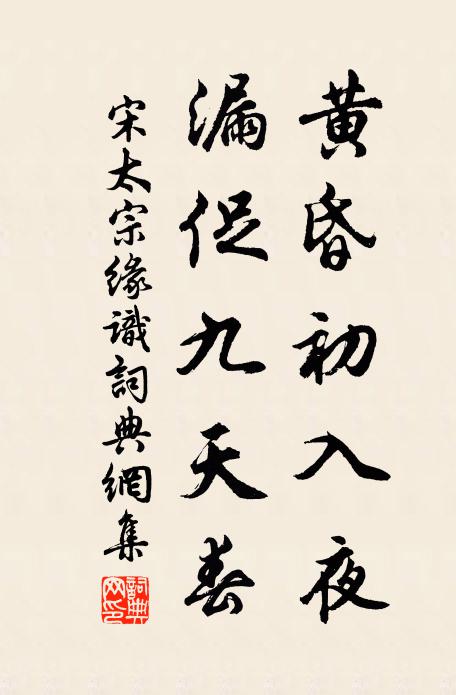 黄昏初入夜
漏促九天春
宋太宗缘識詞典網集
詞典網印